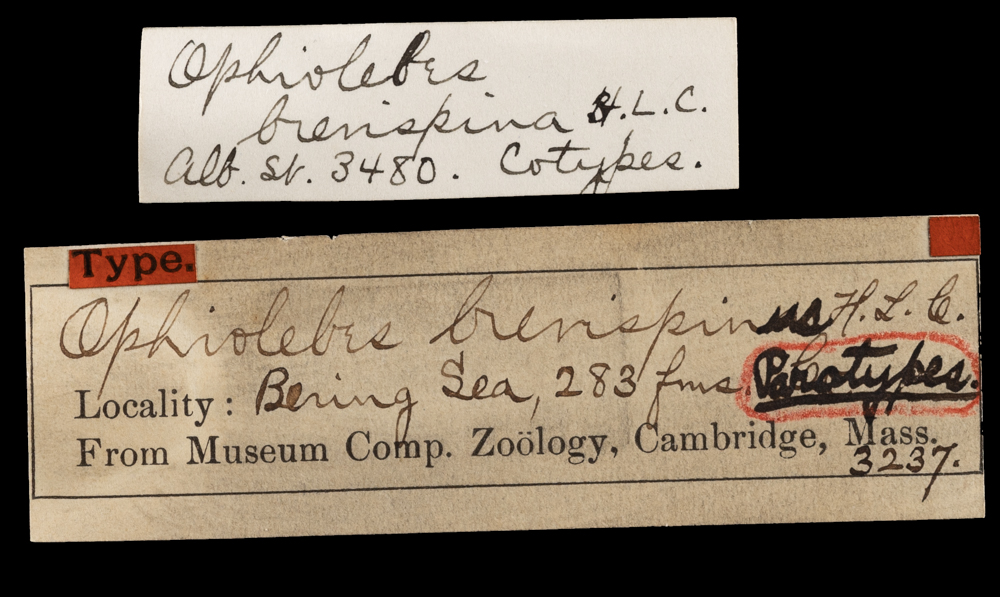 Ophiolebes
brevispina H.L.C.
Alb. St. 3480. Cotypes.
Type.
Ophiolebes brevispinus H. L. C.
Locality: Bering Sea, 283 fms. Paratypes.
From Museum Comp. Zoölogy, Cambridge, Mass.
3237.